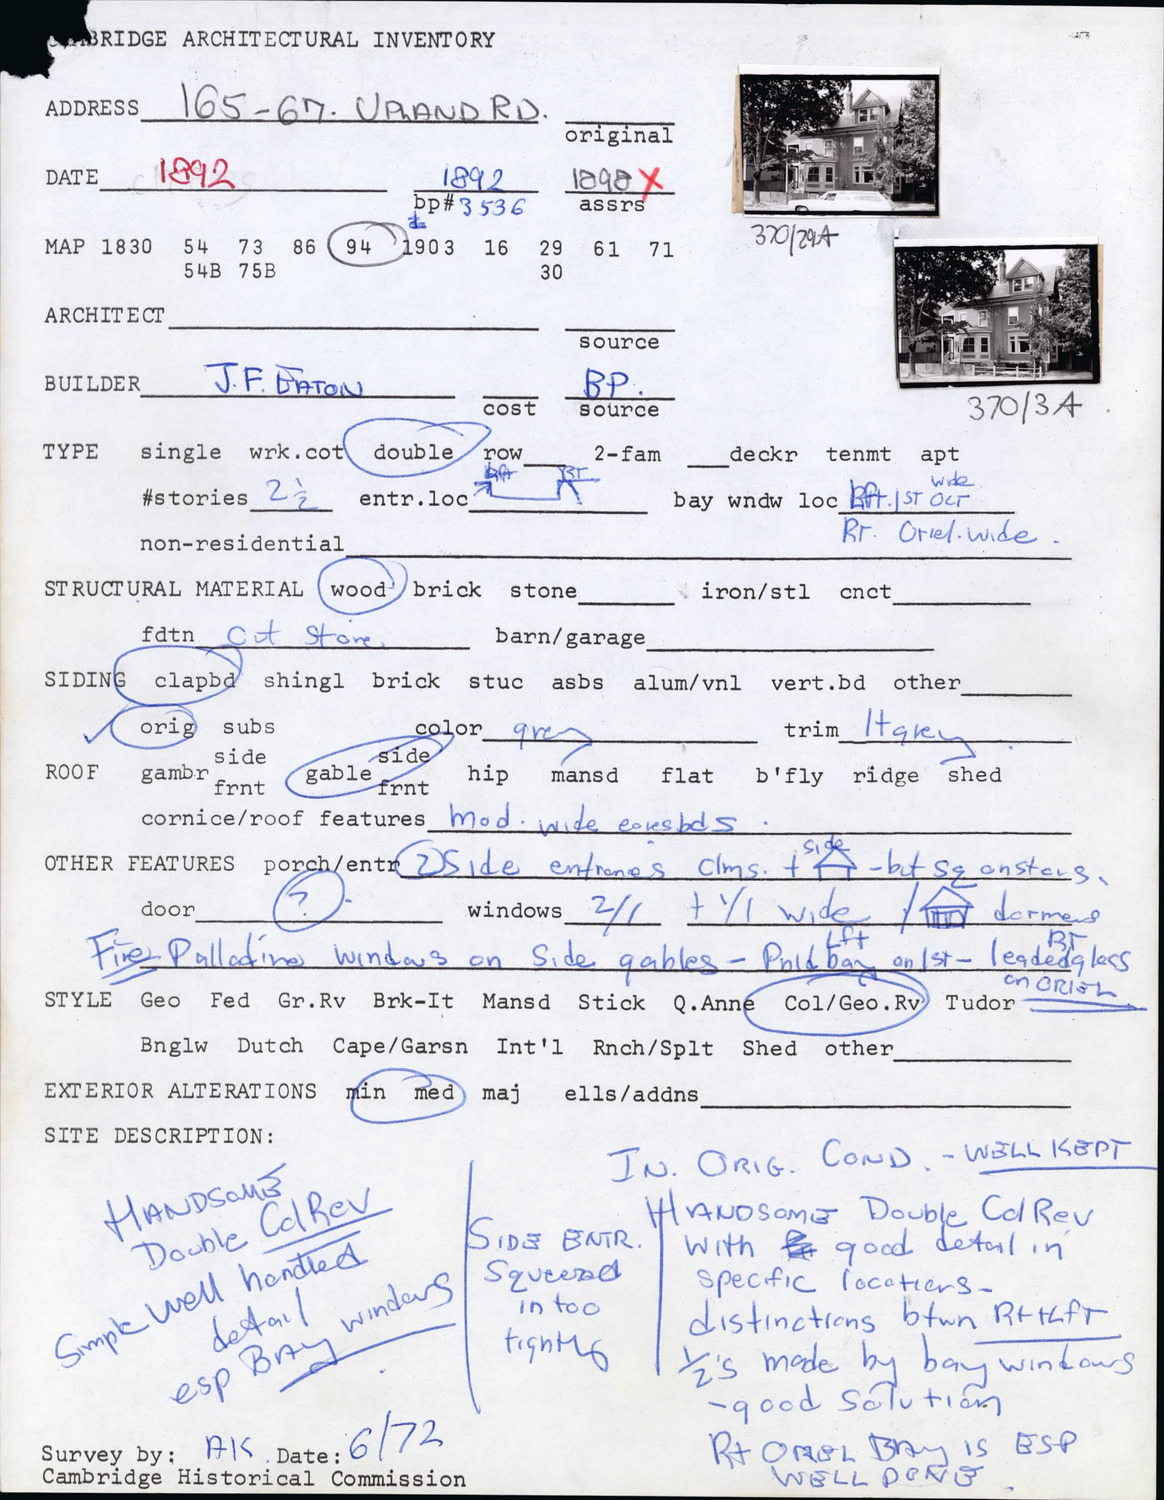 CAMBRIDGE ARCHITECTURAL INVENTORY
ADDRESS 165-67. UPLAND RD.
original
DATE 1892 1892 1898 X
bp# 3536 assrs
MAP 1830 54 73 86 94 1903 16 29 61 71
54B 75B 30
370/29A
ARCHITECT
source
BUILDER J.F. EATON BP.
cost source
370/3A
TYPE single wrk.cot double row 2-fam deckr tenmt apt
#stories 2½ entr.loc Lft Rt bay wndw loc Lft. 1ST OCT wide
Rt. Oriel. wide.
non-residential
STRUCTURAL MATERIAL wood brick stone iron/stl cnct
fdtn Cut Stone barn/garage
SIDING clapbd shingl brick stuc asbs alum/vnl vert.bd other
orig subs color grey trim lt grey
ROOF gambr side frnt gable side frnt hip mansd flat b'fly ridge shed
cornice/roof features Mod. wide eavesbds.
OTHER FEATURES porch/entr 2 Side entrances Clms. + side - but sq onstars.
door ? windows 2/1 + 1/1 wide / dormers
Fine Palladino windows on Side gables - Pnld bay Lft on 1st - leaded glass Rt
on ORIEL
STYLE Geo Fed Gr.Rv Brk-It Mansd Stick Q.Anne Col/Geo.Rv Tudor
Bnglw Dutch Cape/Garsn Int'l Rnch/Splt Shed other
EXTERIOR ALTERATIONS min med maj ells/addns
SITE DESCRIPTION:
HANDSOME
Double Col Rev
Simple well handled
detail
esp BAY windows
SIDE ENTR.
Squeezed
in too
tightly
IN. ORIG. COND. - WELL KEPT
HANDSOME Double Col Rev
with good detail in
specific locations-
distinctions btwn Rt + Lft
½'s made by bay windows
- good solution
Rt ORIEL BAY IS ESP
WELL DONE.
Survey by: AK Date: 6/72
Cambridge Historical Commission